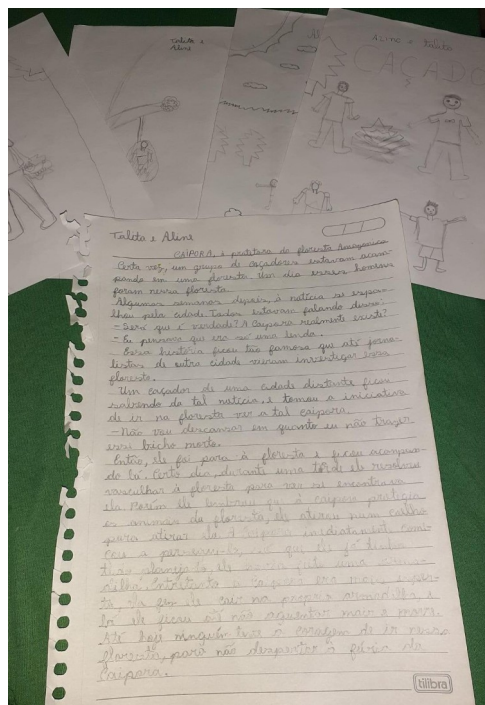 Talita e
Aline
Al
Aline e Talita
CAÇADO
Talita e Aline
CAIPORA, a protetora da floresta Amazônica
Certa vez, um grupo de caçadores estavam acam-
pando em uma floresta. Um dia esses homens
foram nessa floresta.
Algumas semanas depois, a notícia se espa-
lhou pela cidade. Todos estavam falando disso:
- Será que é verdade? A Caipora realmente existe?
- Eu pensava que era só uma lenda.
- Essa história ficou tão famosa que até jorna-
listas de outra cidade vieram investigar essa
floresta.
Um caçador de uma cidade distante ficou
sabendo da tal notícia, e tomou a iniciativa
de ir na floresta ver a tal caipora.
- Não vou descansar em quanto eu não trazer
esse bicho morto.
Então, ele foi para à floresta e ficou acampan-
do lá. Certo dia, durante uma tarde ele resolveu
vasculhar à floresta para ver se encontrava
ela. Porém ele lembrou que à caipora protegia
os animais da floresta, ele atirou num coelho
para atrair ela. A caipora imediatamente come-
çou a persegui-lo, só que ele já tinha
planejado, ele havia feito uma arma-
dilha. Entretanto a caipora era mais esper-
ta, ela fez ele cair na própria armadilha, e
lá ele ficou até não aguentar mais e morre.
Até hoje ninguém teve a coragem de ir nessa
floresta, para não despertar à fúria da
Caipora.
tilibra